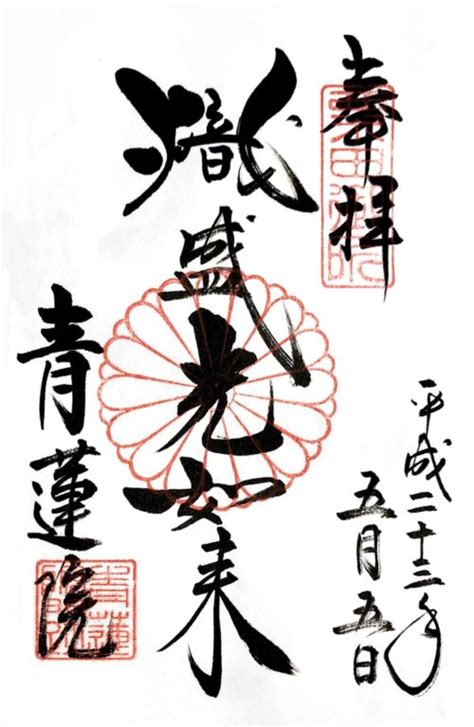 奉拝
平成二十三年
五月五日
熾盛光如来
青蓮院